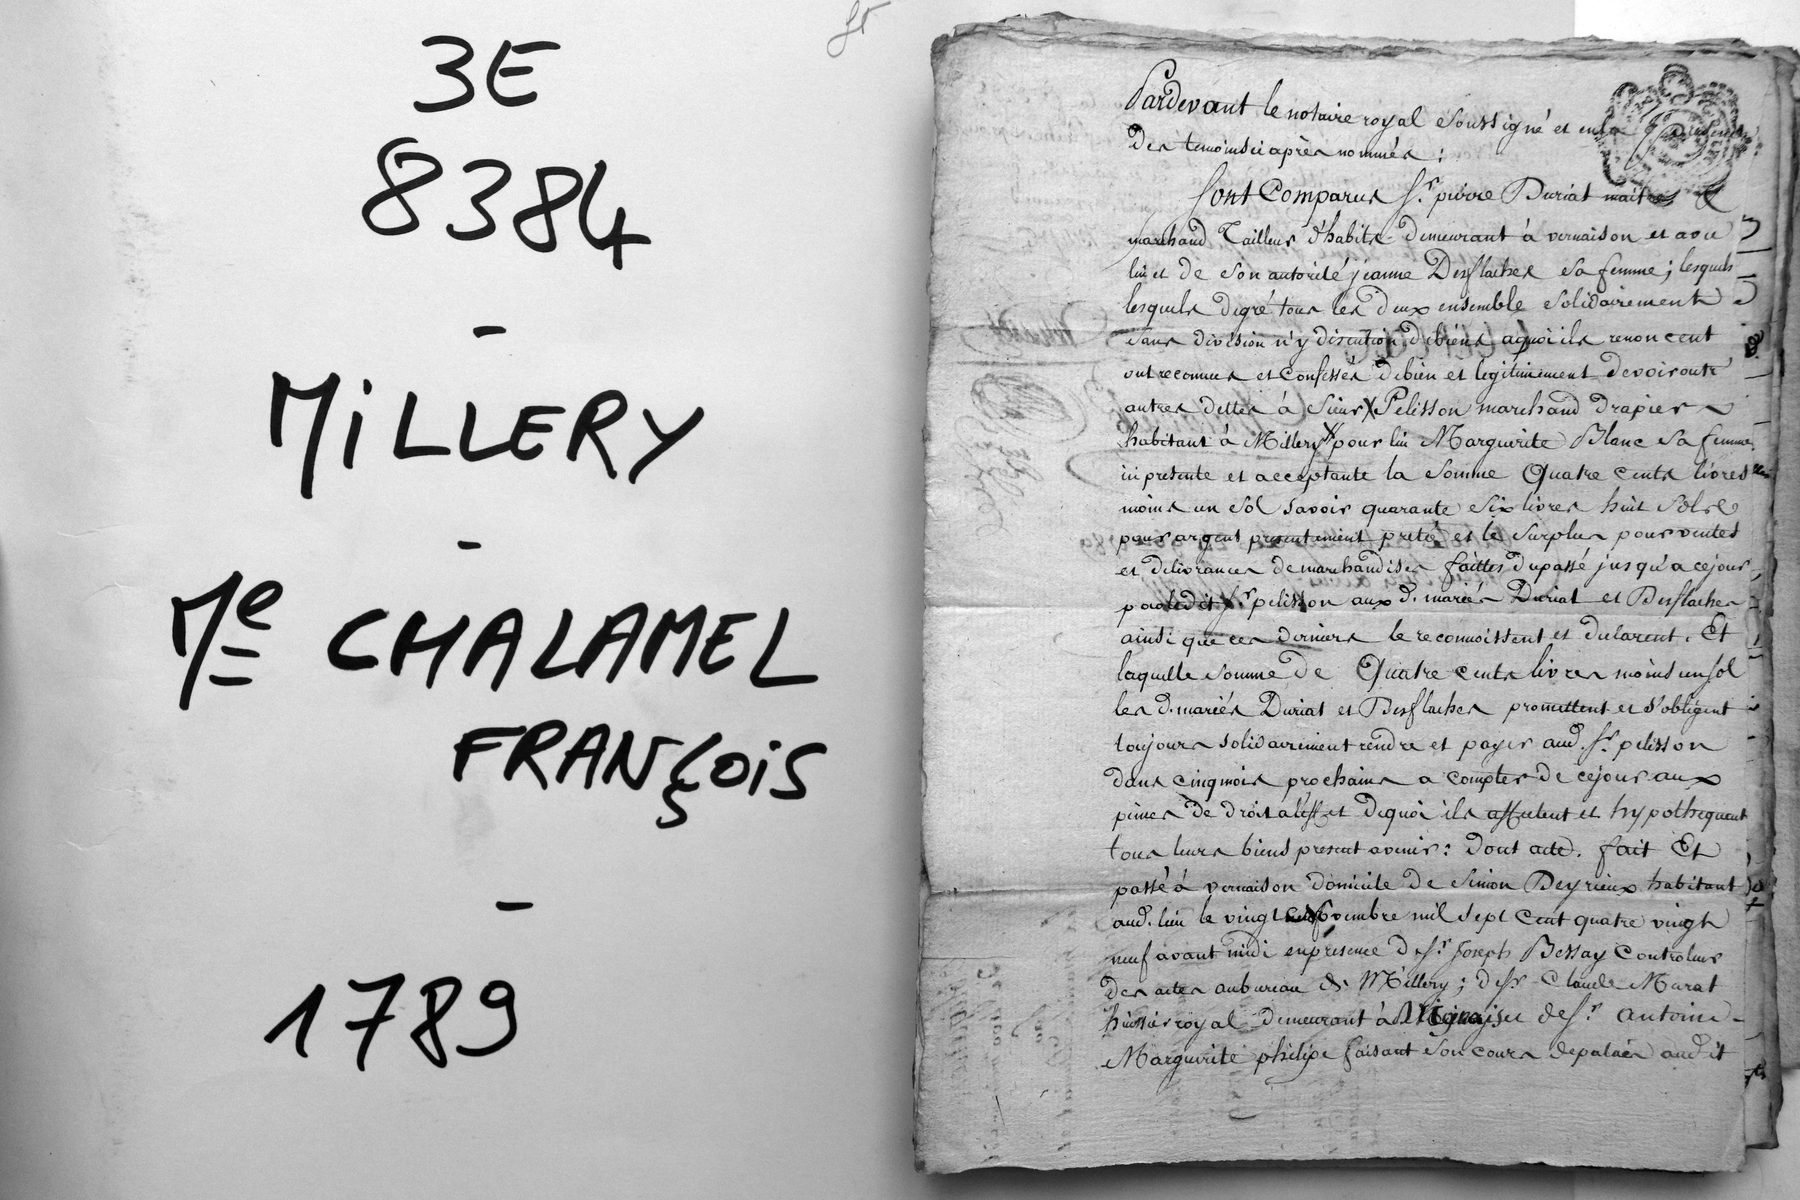 3E
8384
-
MiLLERY
-
Me CHALAMEL
FRANÇOiS
-
1789
Pardevant le notaire royal soussigné et en la presence
Des temoins ci après nommés :
Sont Comparus Sr. pierre Duriat maitre &
marchand Tailleur d'habits demeurant à vernaison et avec
lui et de son autorité jeanne Desflaches sa femme ; lesquels
lesquels de gré tous les deux ensemble solidairement
sans division n'y discution de biens a quoi ils renoncent
ont reconnus et confessés de bien et legitimement devoir outre
autres dettes à Sieur Pelisson marchand drapier
habitant à Millery pour lui Marguerite Blanc sa femme
ici presente et acceptante la somme Quatre cents livres
moins un sol savoir quarante six livres huit sols
pour argent presentement preté et le surplus pour ventes
et delivrances de marchandises faittes du passé jusqu'a ce jour
par ledit Sr. pelisson aux d. mariés Duriat et Desflaches
ainsi que ces derniers le reconnoissent et declarent. Et
laquelle somme de Quatre cents livres moins un sol
les d. mariés Duriat et Desflaches promettent et s'obligent
toujours solidairement rendre et payer aud. Sr. pelisson
dans cinq mois prochains a compter de ce jour aux
peines de droit et de quoi ils affectent et hypothequent
tous leurs biens present avenir : dont acte. fait Et
passé à vernaison domicile de Simon Deyrieux habitant
aud. lieu le vingt novembre mil sept cent quatre vingt
neuf avant midi en presence de Sr. Joseph Bessay Controleur
des actes au bureau de Millery ; de Sr. Claude Murat
huissier royal demeurant à et de Sr. antoine
Marguerite philipe faisant son cours de palais audit